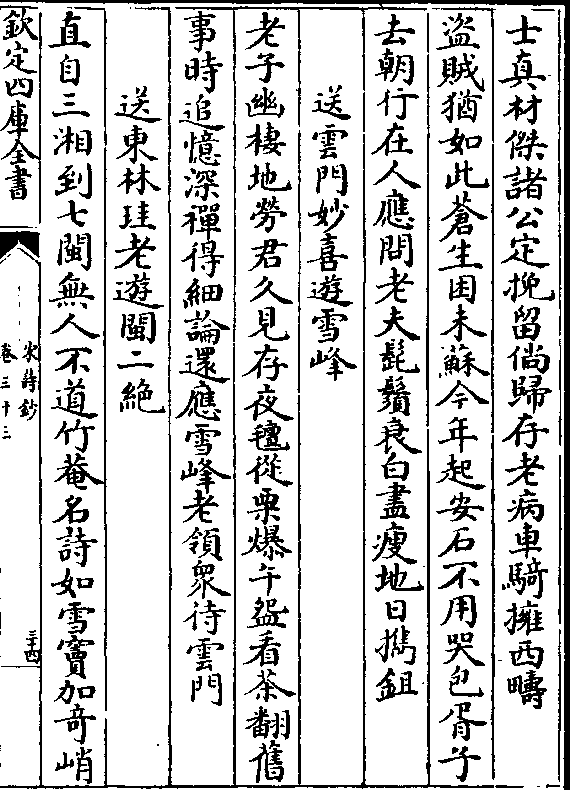 士真材傑諸公定挽留倘歸存老病車騎擁西疇
盜賊猶如此蒼生困未蘇今年起安石不用哭包胥子
去朝行在人應問老夫髭鬚衰白盡瘦地日擕鉏
送雲門妙喜遊雪峰
老子幽棲地勞君久見存夜氊從栗爆午盌看茶翻舊
事時追憶深禪得細論還應雪峰老領衆待雲門
送東林珪老遊閩二絶
直自三湘到七閩無人不道竹菴名詩如雪竇加竒峭
欽定四庫全書
宋詩鈔
卷三十三
三十四